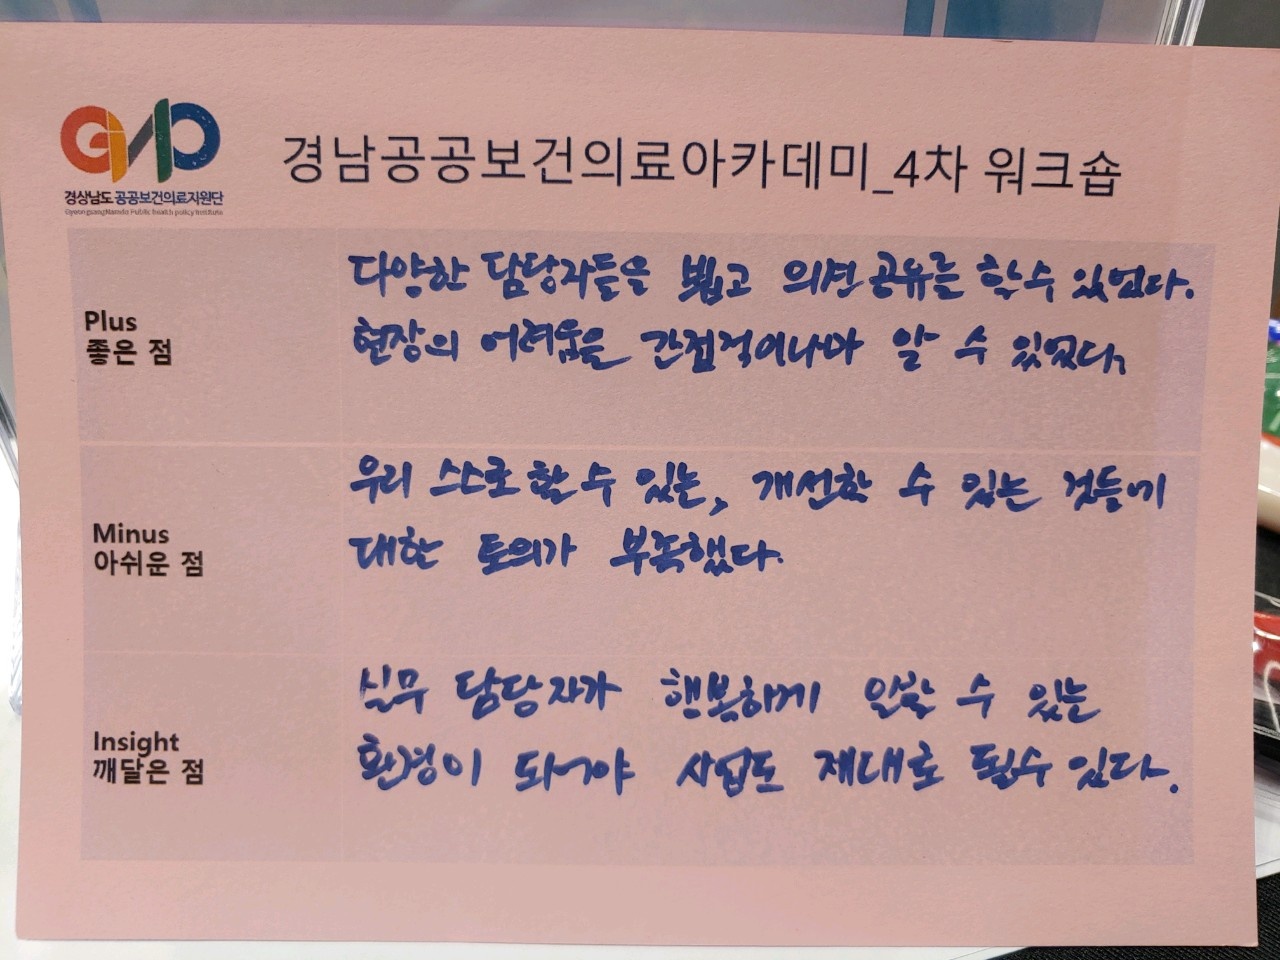 GMP
경상남도 공공보건의료지원단
GyeongsangNamdo Public health policy Institute
경남공공보건의료아카데미_4차 워크숍
Plus
좋은 점
다양한 담당자들을 뵙고 의견 공유를 할 수 있었다.
현장의 어려움을 간접적이나마 알 수 있었다.
Minus
아쉬운 점
우리 스스로 할 수 있는, 개선할 수 있는 것들에
대한 토의가 부족했다.
Insight
깨달은 점
실무 담당자가 행복하게 일할 수 있는
환경이 되어야 사업도 제대로 될 수 있다.